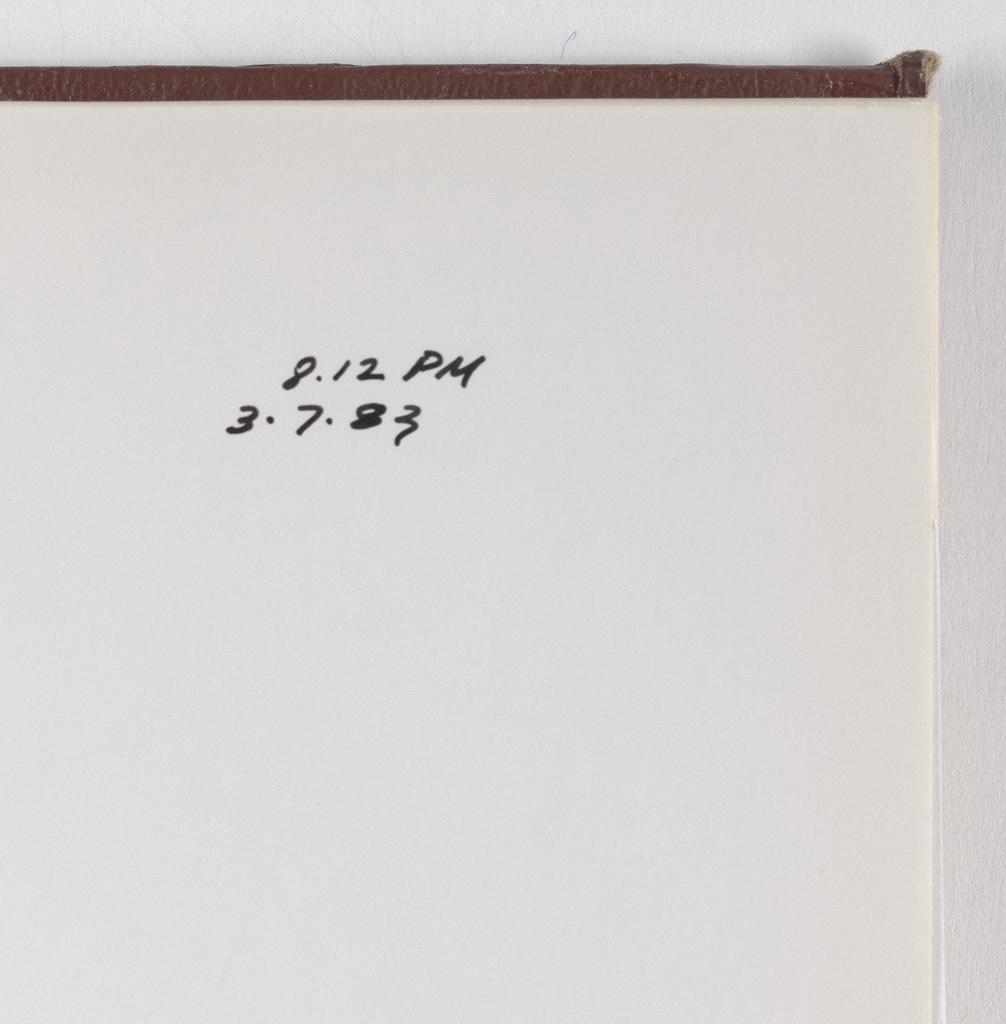 8.12 PM
3.7.83